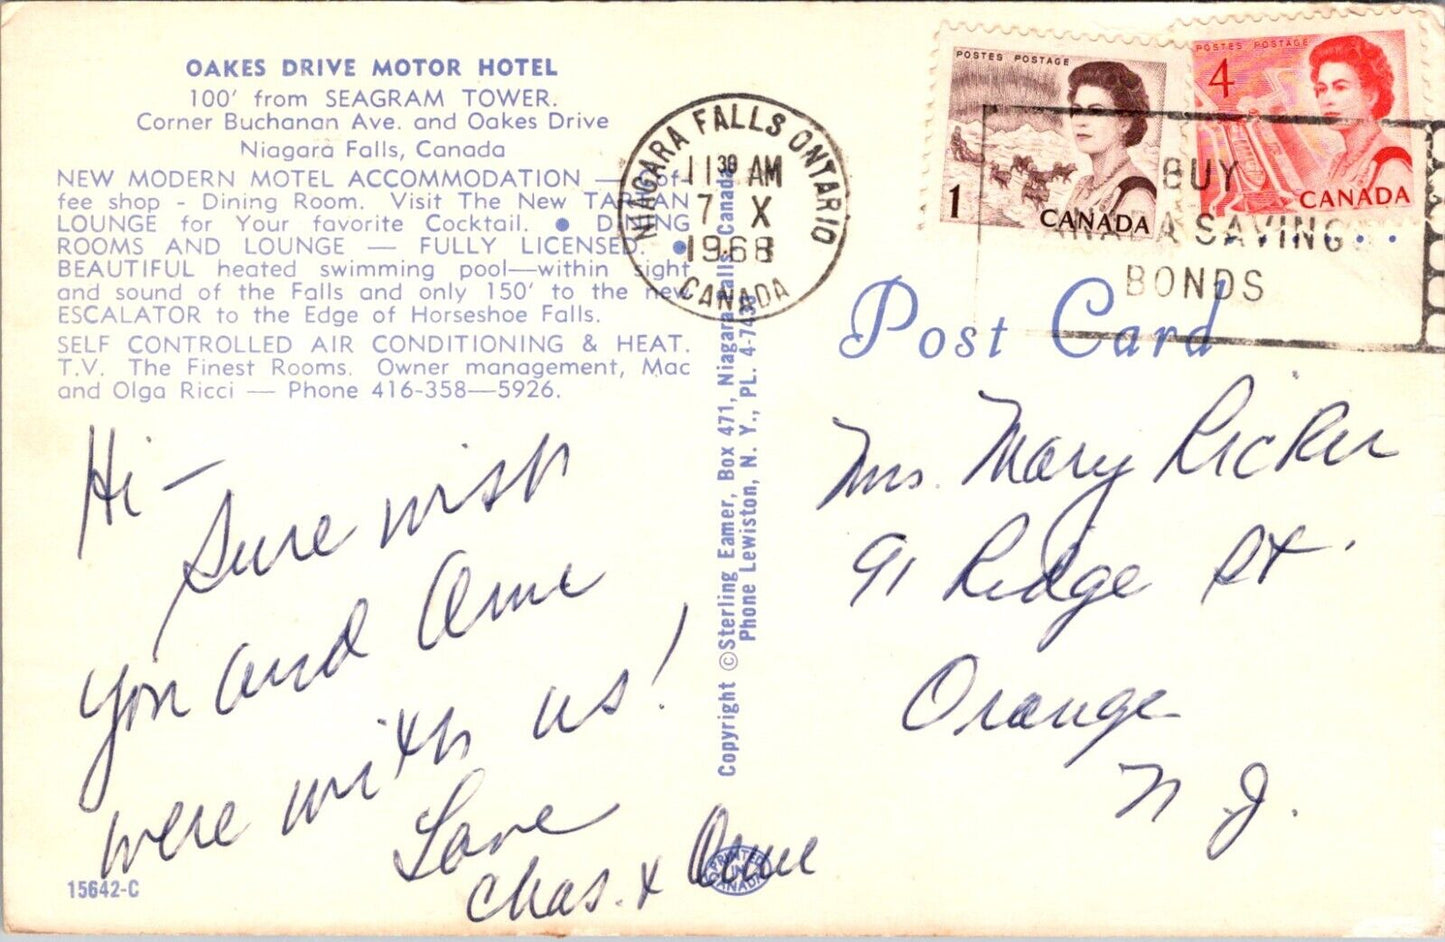 OAKES DRIVE MOTOR HOTEL
100' from SEAGRAM TOWER.
Corner Buchanan Ave. and Oakes Drive
Niagara Falls, Canada
NEW MODERN MOTEL ACCOMMODATION — Cof-
fee shop - Dining Room. Visit The New TARTAN
LOUNGE for Your favorite Cocktail. ● DINING
ROOMS AND LOUNGE — FULLY LICENSED ●
BEAUTIFUL heated swimming pool—within sight
and sound of the Falls and only 150' to the new
ESCALATOR to the Edge of Horseshoe Falls.
SELF CONTROLLED AIR CONDITIONING & HEAT.
T.V. The Finest Rooms. Owner management, Mac
and Olga Ricci — Phone 416-358—5926.
Hi -
Sure wish
you and Anne
were with us!
Love
Chas. & Anne
15642-C
PRINTED
IN
CANADA
Copyright ©Sterling Eamer, Box 471, Niagara Falls, Canada
Phone Lewiston, N. Y., PL. 4-7433
NIAGARA FALLS ONTARIO
11 30 AM
7 X
1968
CANADA
POSTES POSTAGE
1
CANADA
POSTES POSTAGE
4
CANADA
BUY
CANADA SAVINGS
BONDS
Post Card
Mrs. Mary Ricker
91 Ridge St.
Orange
N. J.